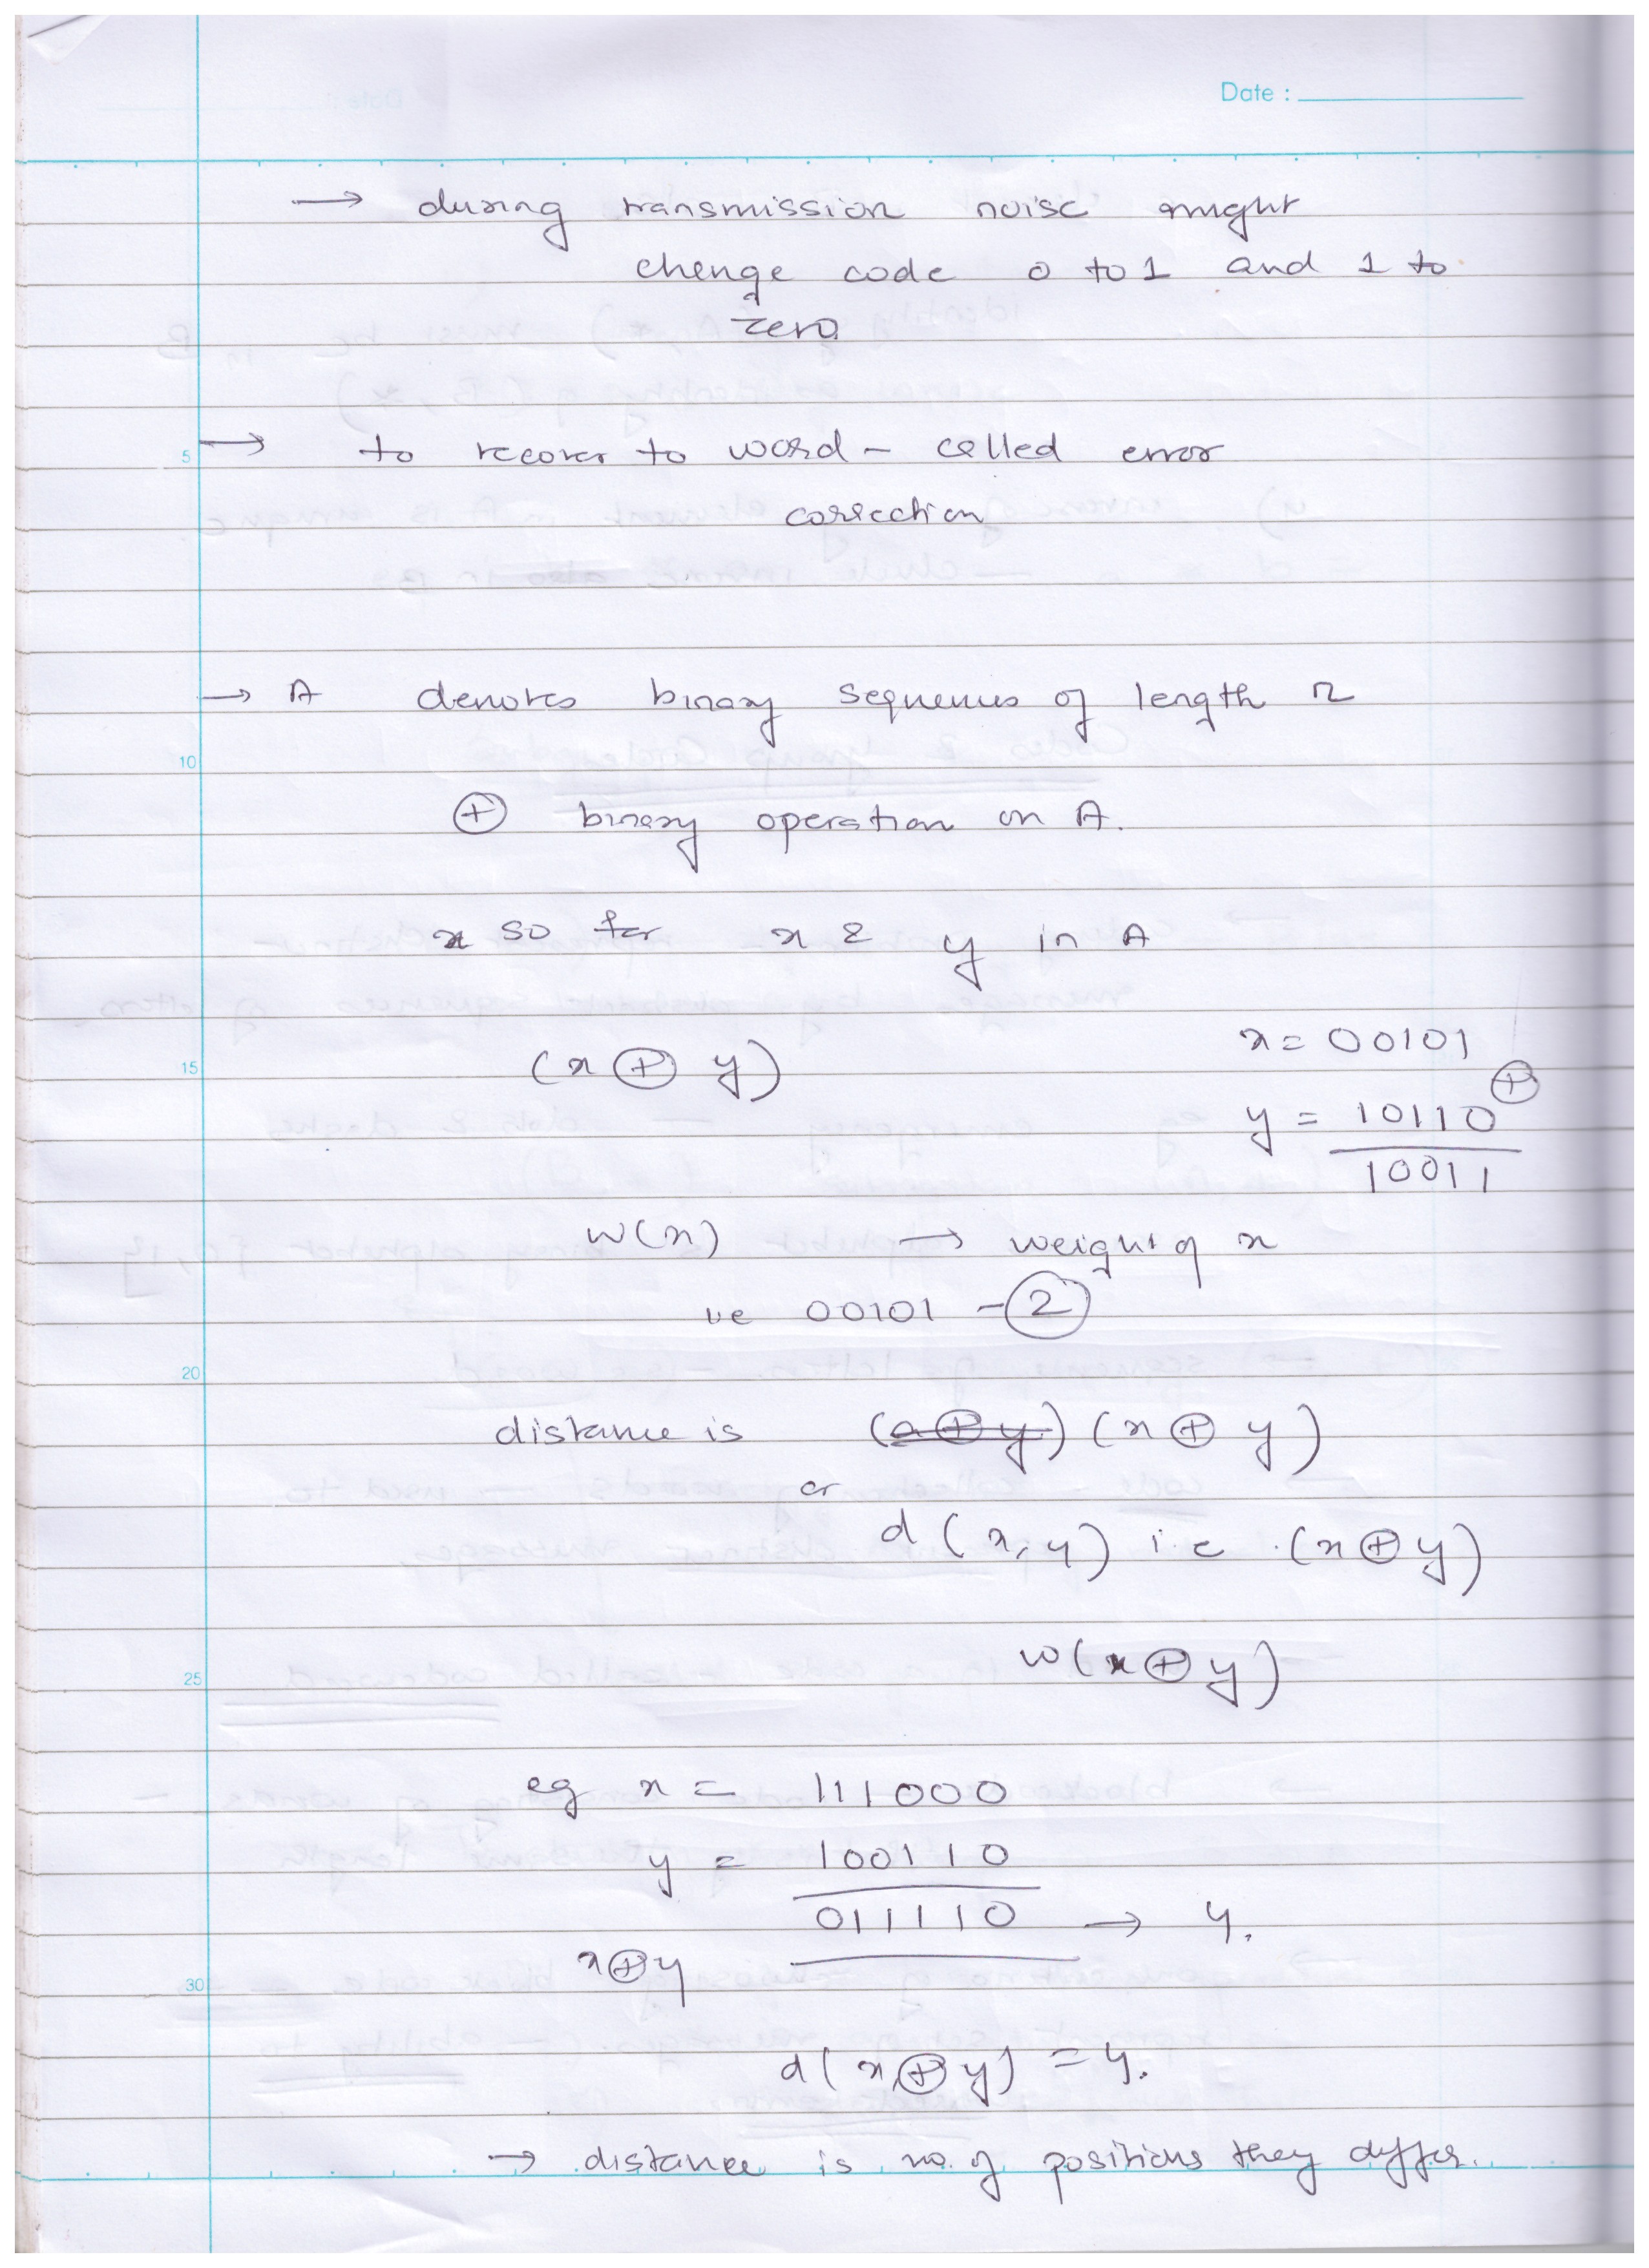 Date :
→ during transmission noise might
chenge code 0 to 1 and 1 to
zero
5
→ to recover to word - called error
correction
→ A denotes binary sequences of length n
10
⊕ binary operation on A.
so for x & y in A
x = 00101
15
(x ⊕ y)
y = 10110 ⊕
10011
w(x) → weight of x
ie 00101 - 2
20
distance is (x ⊕ y)
or
d (x, y) i.e (x ⊕ y)
25
w(x ⊕ y)
eg x = 111000
y = 100110
011110 → 4.
x⊕y
30
d(x ⊕ y) = 4.
→ distance is no. of positions they differ.